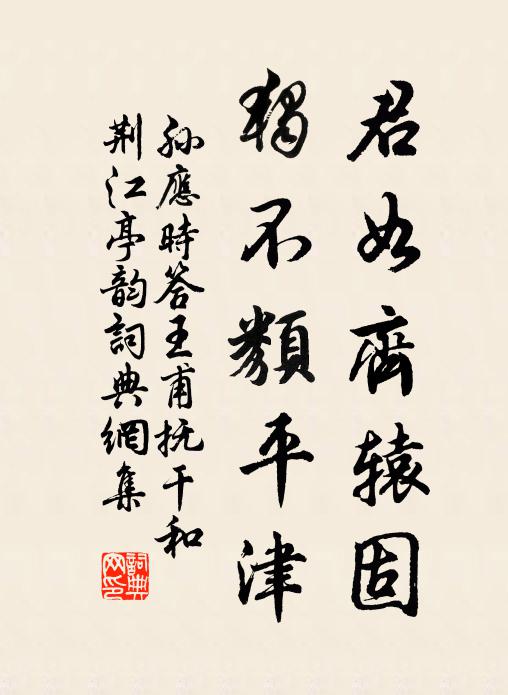 君如齊辕固
獨不類平津
孙應時答王甫抚干和
荆江亭韵詞典網集
詞典网印